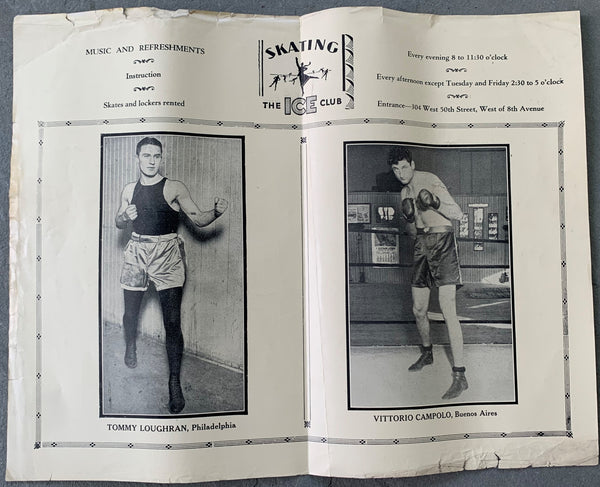 MUSIC AND REFRESHMENTS
Instruction
Skates and lockers rented
SKATING
THE ICE CLUB
Every evening 8 to 11:30 o'clock
Every afternoon except Tuesday and Friday 2:30 to 5 o'clock
Entrance—304 West 50th Street, West of 8th Avenue
TOMMY LOUGHRAN, Philadelphia
VITTORIO CAMPOLO, Buenos Aires